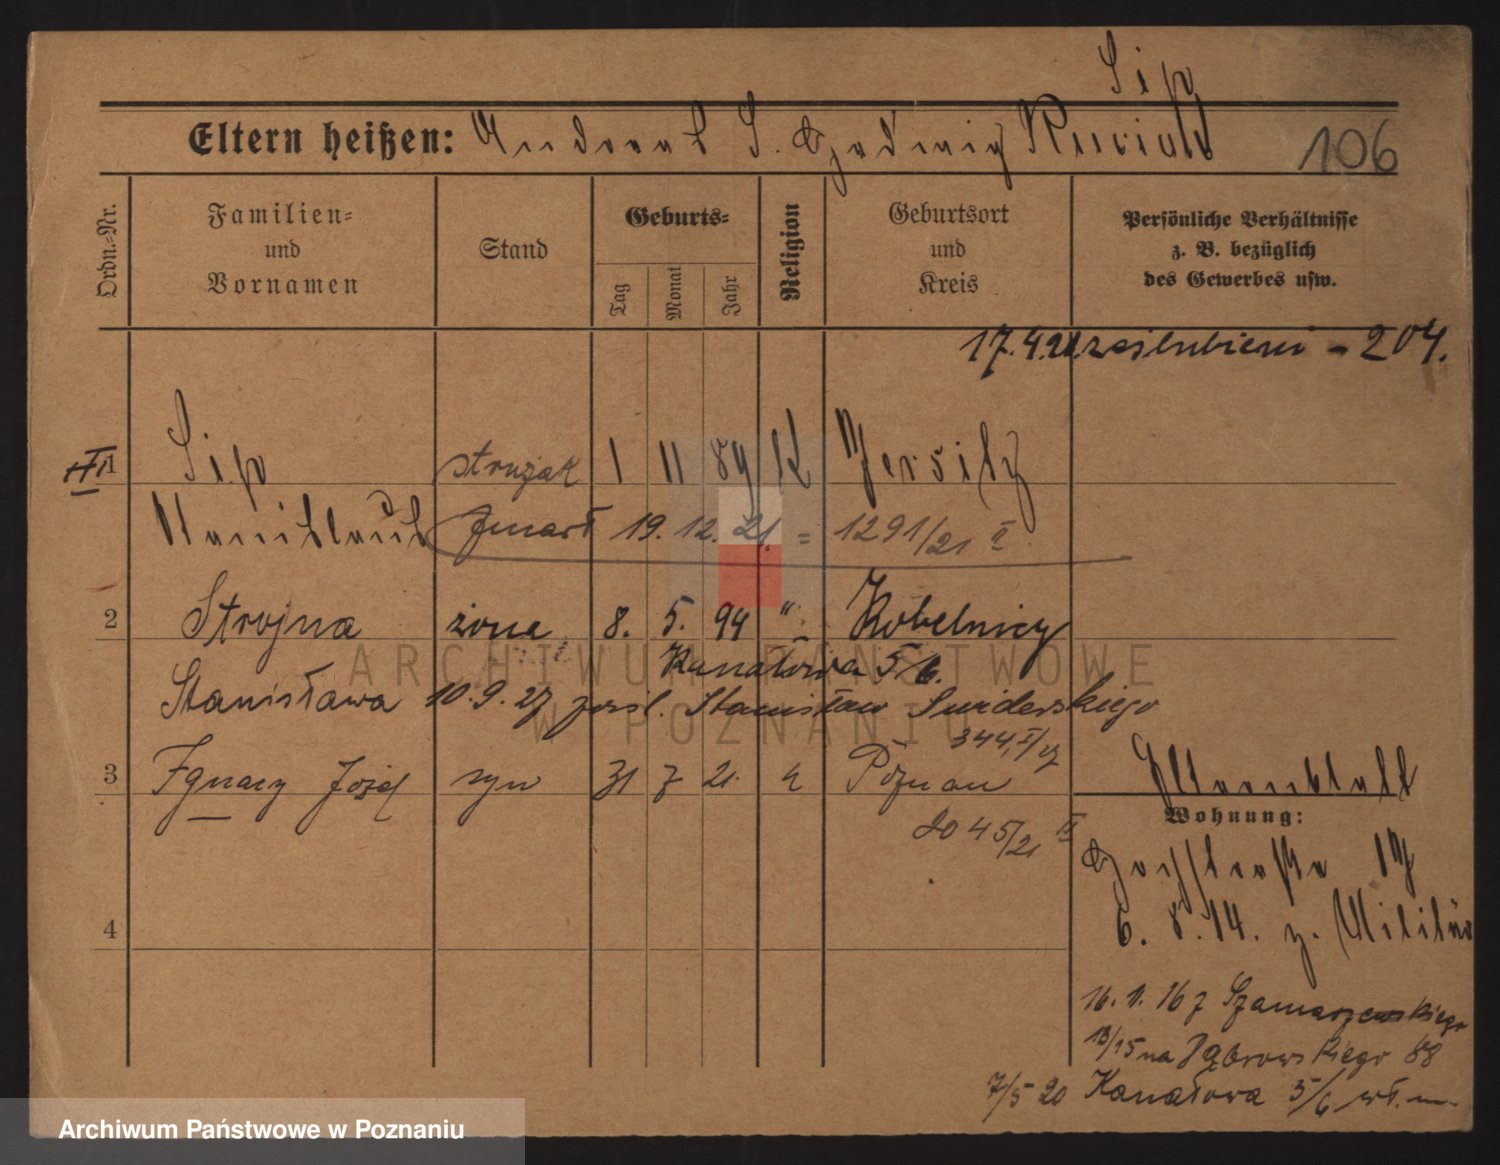 Sip
Eltern heißen: Andreas S. Hedwig
106
Ordn.-Nr.
Familien-
und
Vornamen
Stand
Geburts-
Tag
Monat
Jahr
Religion
Geburtsort
und
Kreis
Persönliche Verhältnisse
z. B. bezüglich
des Gewerbes usw.
17.4.21 zaślubieni - 204.
1 Sip 1 11 89 K Jersitz
Stanislaus Zmarł 19. 12. 21. = 1291/21 II
2 Strojna żona 8. 5. 94 " Kobelnicy
Kanałowa 5/6.
Stanisława 10.9.27 zaśl. Stanisław Swiderskiego
3 Ignacy Józef syn 31 7 21. k Poznan
2045/21 II
Elternblatt
Wohnung:
6. 8. 14. z. Militär
16. 11. 16 z Szamarzewskiego
13/15 na Dąbrowskiego 88
4
7/5 20 Kanałowa 5/6 wł. m.
ARCHIWUM PAŃSTWOWE
W POZNANIU
Archiwum Państwowe w Poznaniu